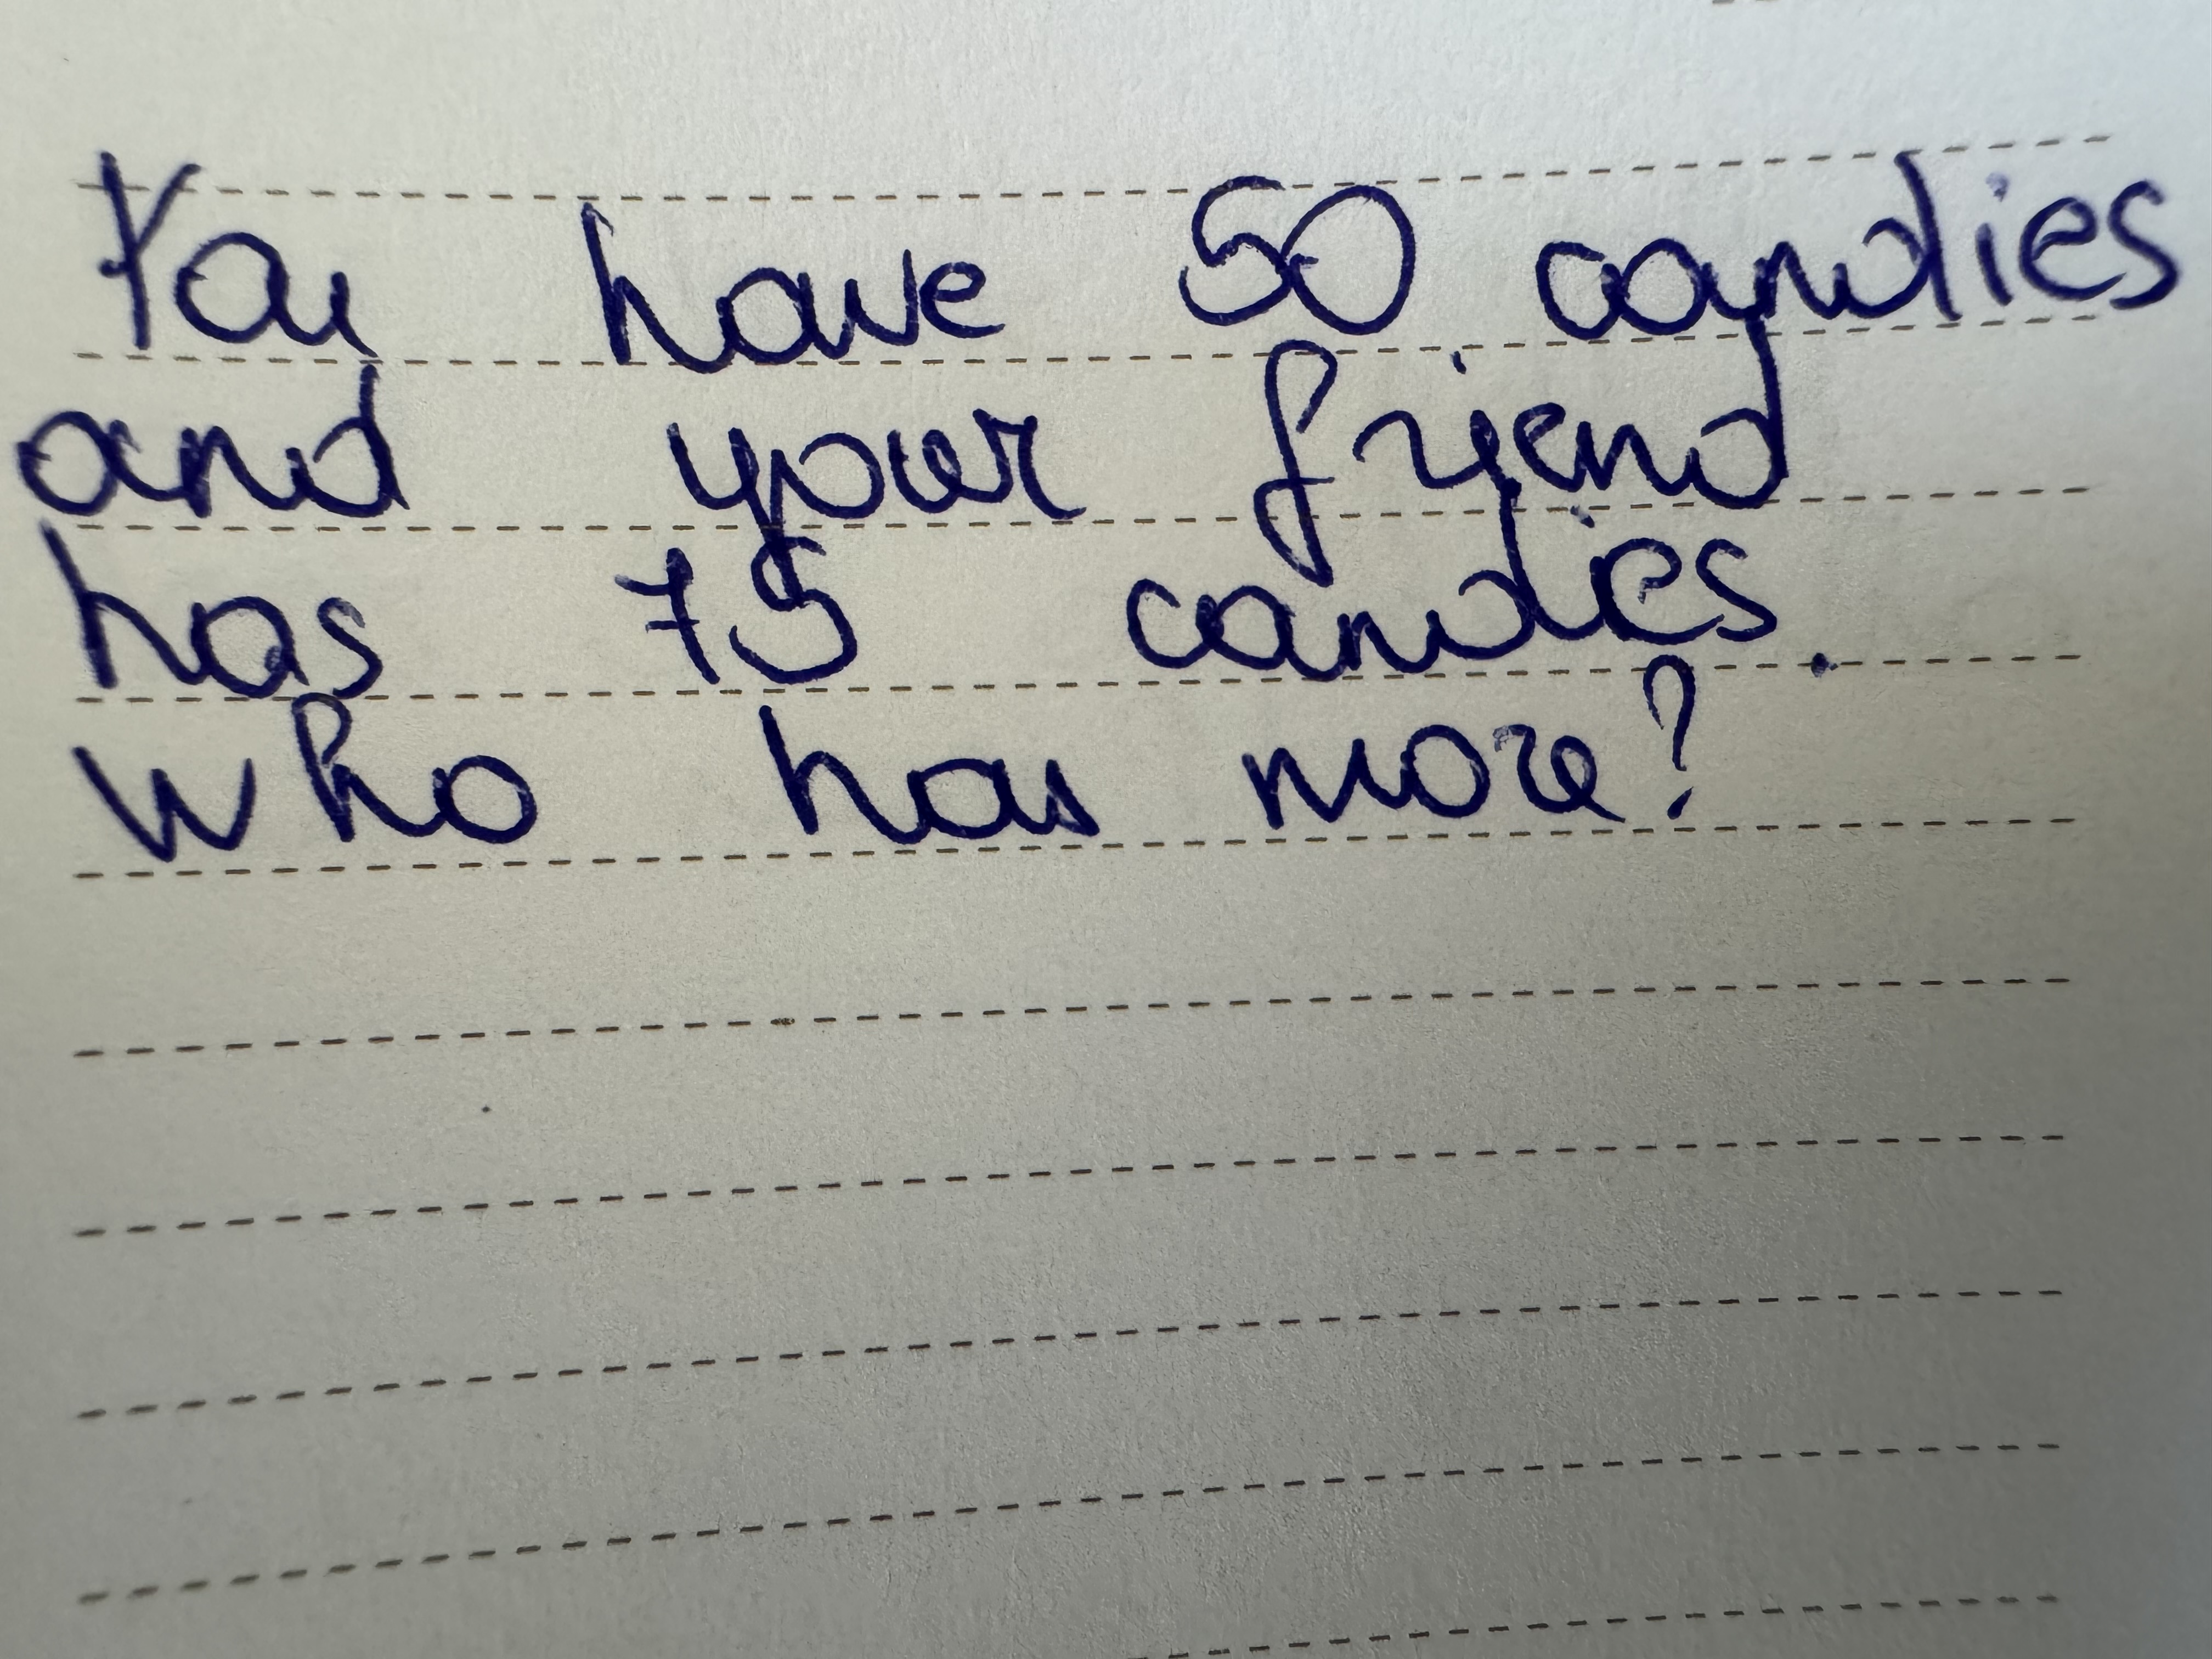 You have 50 candies
and your friend
has 75 candies.
who has more?